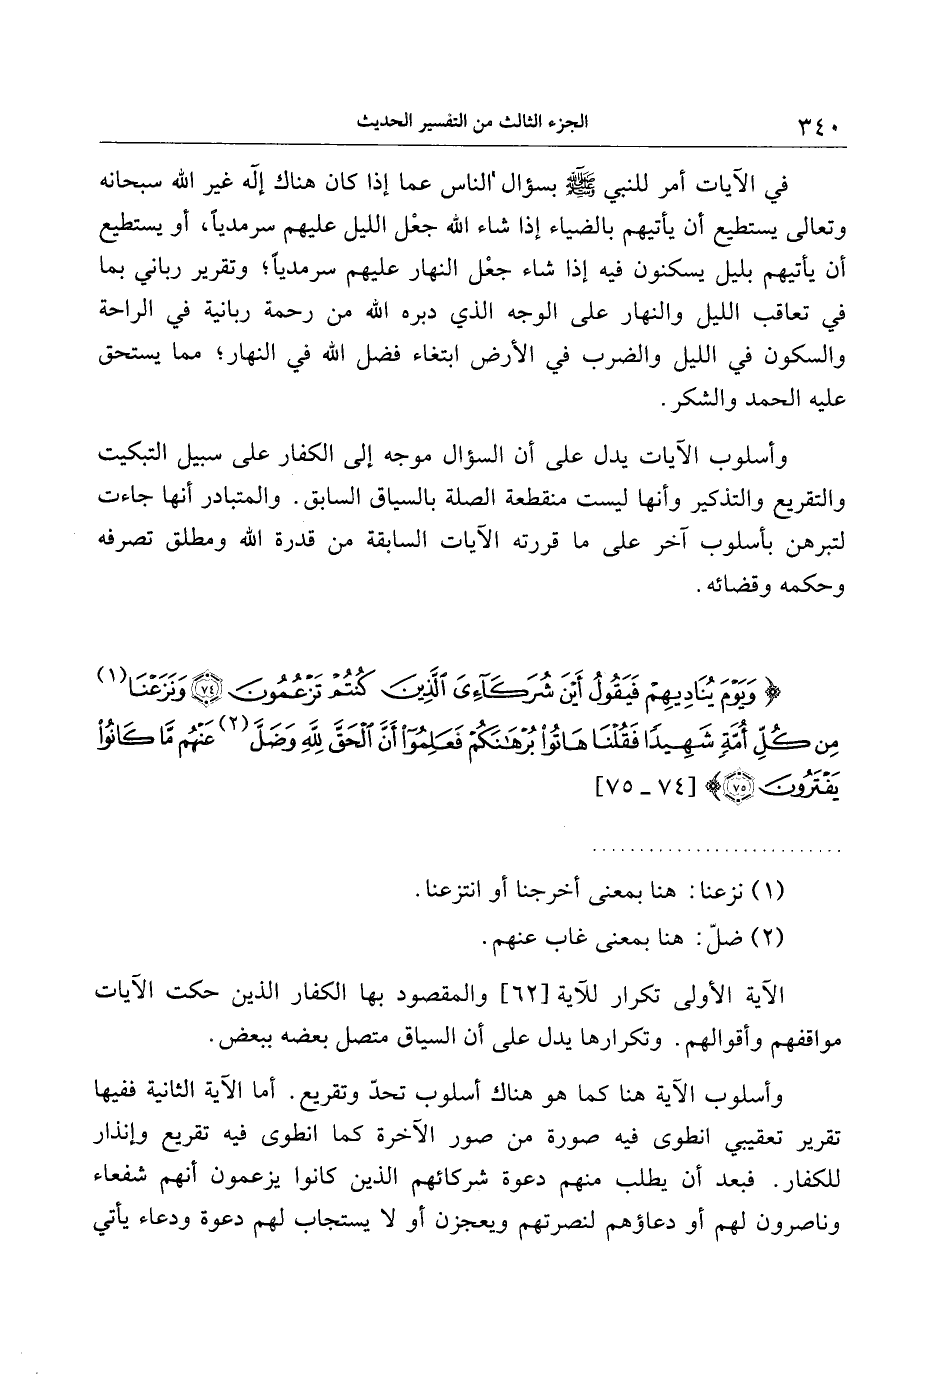 ٣٤٠ الجزء الثالث من التفسير الحديث
في الآيات أمر للنبي ﷺ بسؤال الناس عما إذا كان هناك إلٓه غير الله سبحانه
وتعالى يستطيع أن يأتيهم بالضياء إذا شاء الله جعْل الليل عليهم سرمدياً، أو يستطيع
أن يأتيهم بليل يسكنون فيه إذا شاء جعْل النهار عليهم سرمدياً؛ وتقرير رباني بما
في تعاقب الليل والنهار على الوجه الذي دبره الله من رحمة ربانية في الراحة
والسكون في الليل والضرب في الأرض ابتغاء فضل الله في النهار؛ مما يستحق
عليه الحمد والشكر.
وأسلوب الآيات يدل على أن السؤال موجه إلى الكفار على سبيل التبكيت
والتقريع والتذكير وأنها ليست منقطعة الصلة بالسياق السابق. والمتبادر أنها جاءت
لتبرهن بأسلوب آخر على ما قررته الآيات السابقة من قدرة الله ومطلق تصرفه
وحكمه وقضائه.
﴿ وَيَوْمَ يُنَادِيهِمْ فَيَقُولُ أَيْنَ شُرَكَآءِىَ ٱلَّذِينَ كُنتُمْ تَزْعُمُونَ ٧٤ وَنَزَعْنَا(١)
مِن كُلِّ أُمَّةٍ شَهِيدًا فَقُلْنَا هَاتُوا۟ بُرْهَٰنَكُمْ فَعَلِمُوٓا۟ أَنَّ ٱلْحَقَّ لِلَّهِ وَضَلَّ(٢) عَنْهُم مَّا كَانُوا۟
يَفْتَرُونَ ٧٥﴾ [٧٤ ـ ٧٥]
.........................
(١) نزعنا: هنا بمعنى أخرجنا أو انتزعنا.
(٢) ضلّ: هنا بمعنى غاب عنهم.
الآية الأولى تكرار للآية [٦٢] والمقصود بها الكفار الذين حكت الآيات
مواقفهم وأقوالهم. وتكرارها يدل على أن السياق متصل بعضه ببعض.
وأسلوب الآية هنا كما هو هناك أسلوب تحدّ وتقريع. أما الآية الثانية ففيها
تقرير تعقيبي انطوى فيه صورة من صور الآخرة كما انطوى فيه تقريع وإنذار
للكفار. فبعد أن يطلب منهم دعوة شركائهم الذين كانوا يزعمون أنهم شفعاء
وناصرون لهم أو دعاؤهم لنصرتهم ويعجزن أو لا يستجاب لهم دعوة ودعاء يأتي